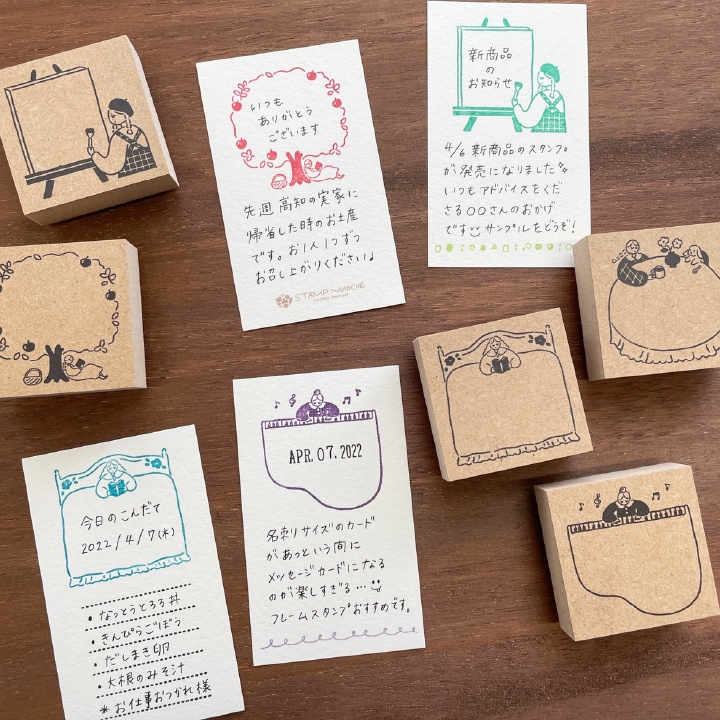 いつも
ありがとう
ございます
先週高知の実家に
帰省した時のお土産
です。お1人1つずつ
お召し上がりください♩
STAMP MARCHE
新商品
の
お知らせ
4/6 新商品のスタンプ
が発売になりました
いつもアドバイスをくだ
さる〇〇さんのおかげ
です サンプルをどうぞ!
APR. 07. 2022
名刺サイズのカード
があっという間に
メッセージカードになる
のが楽しすぎる…
フレームスタンプおすすめです。
今日のこんだて
2022/4/7(木)
・なっとうとろろ丼
・きんぴらごぼう
・だしまき卵
・大根のみそ汁
*お仕事おつかれ様